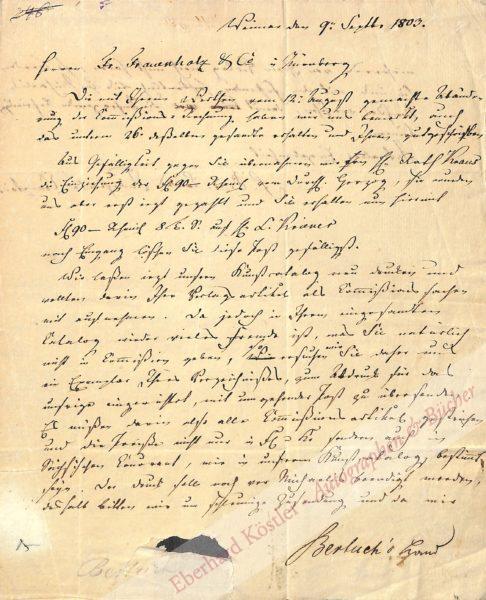 Weimar den 9ⁿ Septbr 1803.
Herrn Fr. Frauenholz & Co in Nürnberg
Die mit Ihrem vom 12. August gemachte Abänderung
der Commissions Rechnung haben wir uns bemerkt, auch
das unterm 26 desselben gesandte erhalten und Ihnen gutgeschrieben
Aus Gefälligkeit gegen Sie übernahmen wir für H. Rath Kraus
die Einziehung der f 90 – vom Durchl. Herzog, sie wurden
uns aber erst jezt gezahlt und Sie erhalten nun hiermit
f 90 – auf H.
nach Eingang löschen Sie diese Post gefälligst.
Wir lassen jezt unsern Kunstcatalog neu drucken und
wollten darin Ihre Verlagsartikel als Commissions sachen
mit aufnehmen. Da jedoch in Ihrem eingesandten
Catalog wieder vieles fremde ist, was Sie natürlich
nicht in Commission geben, so ersuchen wir Sie daher uns
ein Exemplar Ihres Verzeichnisses, zum Abdruck für das
unsrige eingerichtet, mit umgehender Post zu übersenden
Es müssen darin also alle Commissions artikel
und die Preisse nicht nur in f u Kr sondern auch in
Sächsischen Courant, wie in unserm Kunstcatalog, bestimmt
seyn. Der Druck soll noch vor Michaeli beendigt werden,
deshalb bitten wir um schleunige Zusendung und da wir
Bertuch's Hand
Eberhard Köstler - Autographen & Bücher